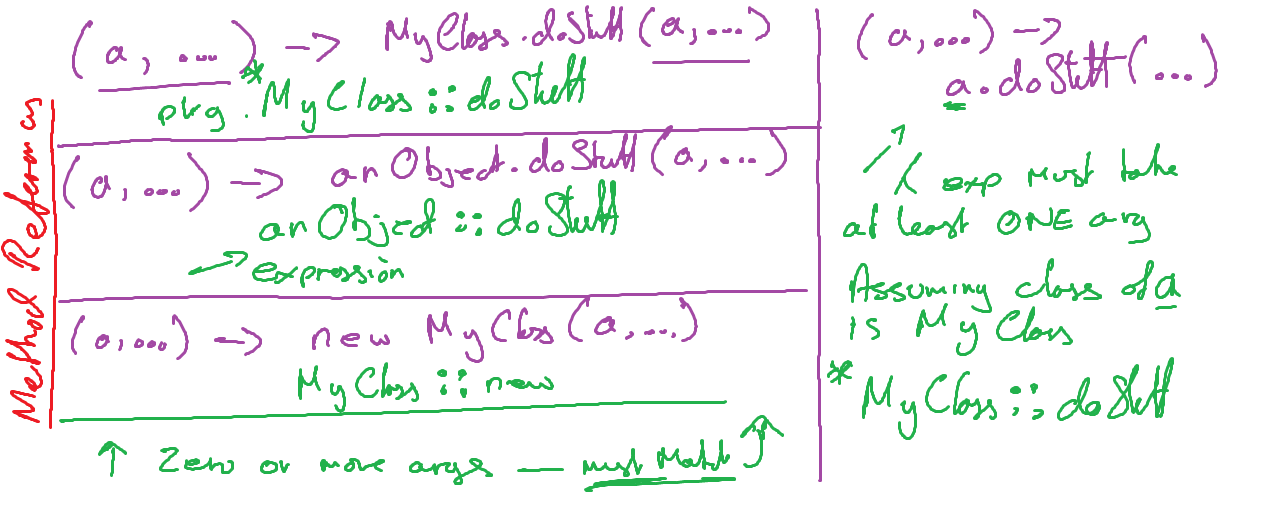 Method References
(a, ...) -> MyClass.doStuff(a, ...)
* pkg.MyClass::doStuff
(a, ...) -> anObject.doStuff(a, ...)
anObject::doStuff
expression
(a, ...) -> new MyClass(a, ...)
MyClass::new
↑ Zero or more args — must Match ↑
(a, ...) ->
a.doStuff(...)
↗ λ exp must take
at least ONE arg
Assuming class of a
is MyClass
* MyClass::doStuff